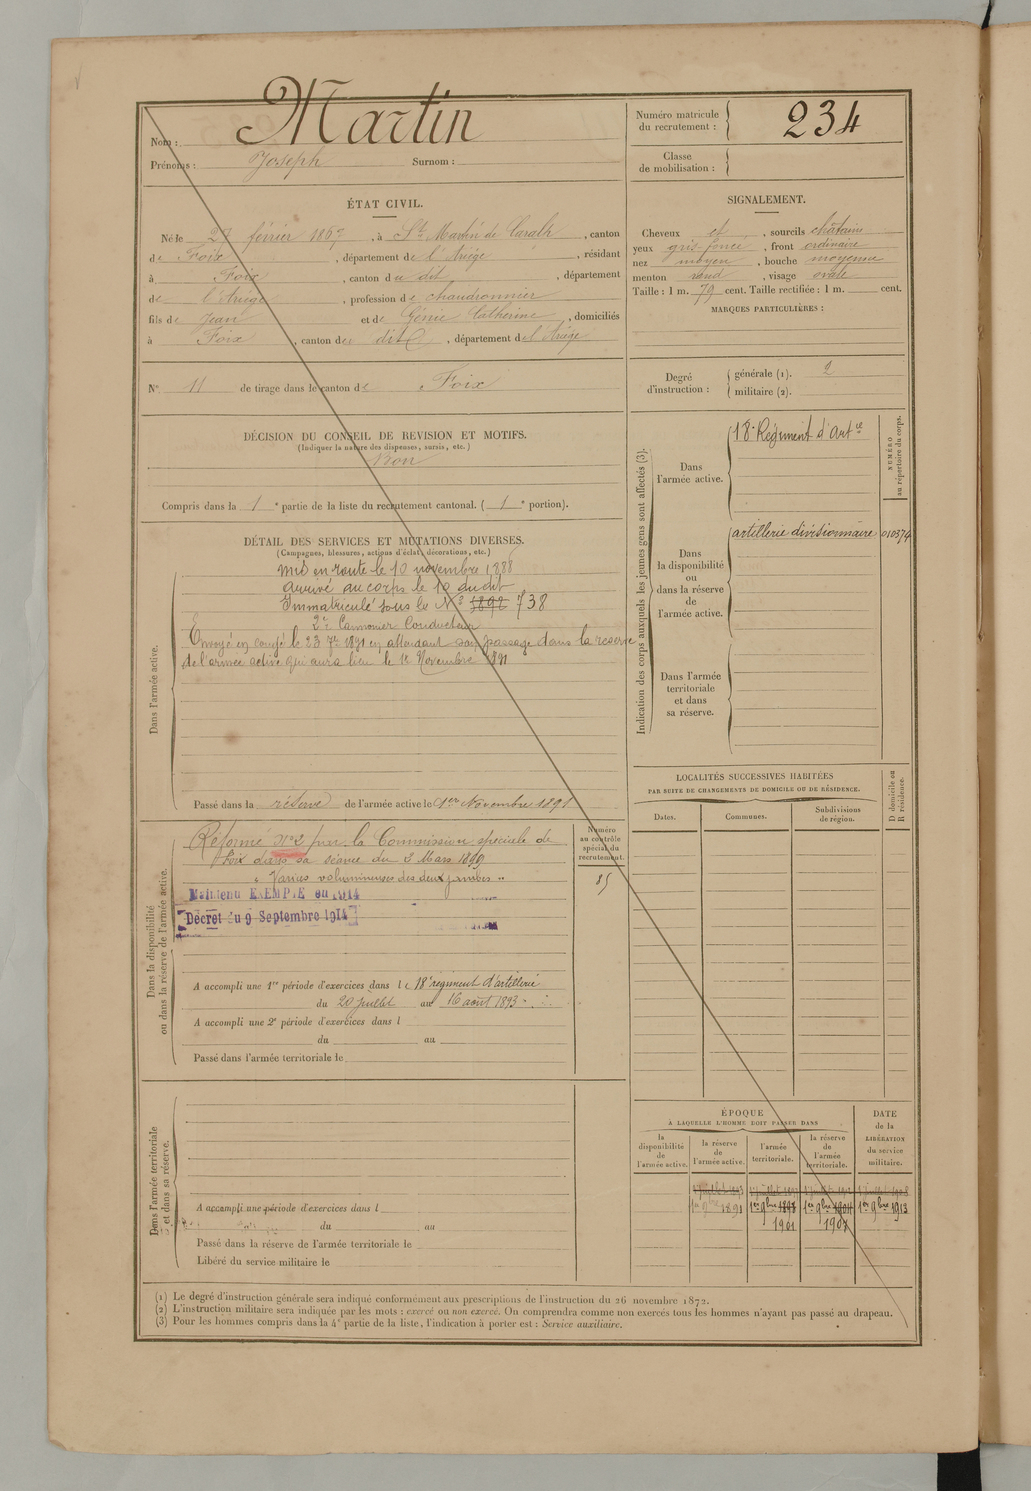 Martin
Nom :
Prénoms : Joseph Surnom :
Numéro matricule du recrutement : 234
Classe de mobilisation :
ÉTAT CIVIL.
Né le 27 février 1867, à St Martin de Caralp, canton
de Foix, département de l'Ariège, résidant
à Foix, canton du dit, département
de l'Ariège, profession de chaudronnier
fils de Jean et de Génie Catherine, domiciliés
à Foix, canton du dit, département de l'Ariège
N° 11 de tirage dans le canton de Foix
SIGNALEMENT.
Cheveux et, sourcils châtains
yeux gris foncé, front ordinaire
nez moyen, bouche moyenne
menton rond, visage ovale
Taille : 1 m. 79 cent. Taille rectifiée : 1 m. cent.
MARQUES PARTICULIÈRES :
Degré d'instruction :
générale (1). 2
militaire (2).
DÉCISION DU CONSEIL DE REVISION ET MOTIFS.
(Indiquer la nature des dispenses, sursis, etc.)
Bon
Compris dans la 1e partie de la liste du recrutement cantonal. ( 1e portion).
DÉTAIL DES SERVICES ET MUTATIONS DIVERSES.
(Campagnes, blessures, actions d'éclat, décorations, etc.)
Dans l'armée active.
Mis en route le 10 novembre 1888
Arrivé au corps le 10 du dit
Immatriculé sous le N° 1892 738
2e Cannonier Conducteur
Envoyé en congé le 23 7bre 1891 en attendant son passage dans la réserve
de l'armée active qui aura lieu le 1er Novembre 1891
Passé dans la réserve de l'armée active le 1er Novembre 1891
Indication des corps auxquels les jeunes gens sont affectés (3).
NUMÉRO au répertoire du corps.
Dans l'armée active.
18e Régiment d'artie
Dans la disponibilité ou dans la réserve de l'armée active.
artillerie divisionnaire 010374
Dans l'armée territoriale et dans sa réserve.
Dans la disponibilité ou dans la réserve de l'armée active.
Numéro au contrôle spécial du recrutement.
85
Réformé N°2 par la Commission spéciale de
Foix dans sa séance du 3 Mars 1899
"Varices volumineuses des deux jambes"
Maintenu EXEMPTE en 1914
Décret du 9 Septembre 1914
A accompli une 1re période d'exercices dans le 18e régiment d'artillerie
du 20 juillet au 16 août 1893
A accompli une 2e période d'exercices dans l
du au
Passé dans l'armée territoriale le
LOCALITÉS SUCCESSIVES HABITÉES
PAR SUITE DE CHANGEMENTS DE DOMICILE OU DE RÉSIDENCE.
D domicile ou R résidence.
Dates. Communes. Subdivisions de région.
Dans l'armée territoriale et dans sa réserve.
A accompli une période d'exercices dans l
du au
Passé dans la réserve de l'armée territoriale le
Libéré du service militaire le
ÉPOQUE
À LAQUELLE L'HOMME DOIT PASSER DANS
la disponibilité de l'armée active.
la réserve de l'armée active.
l'armée territoriale.
la réserve de l'armée territoriale.
DATE de la LIBÉRATION du service militaire.
1er 9bre 1891 1er 9bre 1898 1er 9bre 1904 1er 9bre 1913
1901 1907
(1) Le degré d'instruction générale sera indiqué conformément aux prescriptions de l'instruction du 26 novembre 1872.
(2) L'instruction militaire sera indiquée par les mots : exercé ou non exercé. On comprendra comme non exercés tous les hommes n'ayant pas passé au drapeau.
(3) Pour les hommes compris dans la 4e partie de la liste, l'indication à porter est : Service auxiliaire.